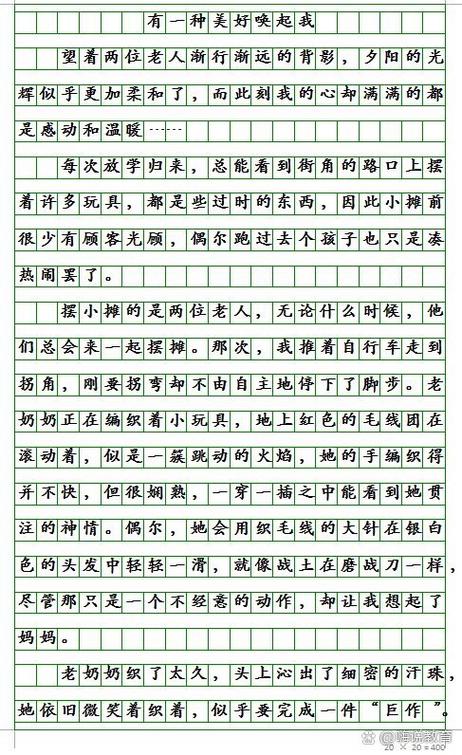 有一种美好唤起我
望着两位老人渐行渐远的背影，夕阳的光
辉似乎更加柔和了，而此刻我的心却满满的都
是感动和温暖……
每次放学归来，总能看到街角的路口上摆
着许多玩具，都是些过时的东西，因此小摊前
很少有顾客光顾，偶尔跑过去个孩子也只是凑
热闹罢了。
摆小摊的是两位老人，无论什么时候，他
们总会来一起摆摊。那次，我推着自行车走到
拐角，刚要拐弯却不由自主地停下了脚步。老
奶奶正在编织着小玩具，地上红色的毛线团在
滚动着，似是一簇跳动的火焰，她的手编织得
并不快，但很娴熟，一穿一插之中能看到她贯
注的神情。偶尔，她会用织毛线的大针在银白
色的头发中轻轻一滑，就像战士在磨战刀一样，
尽管那只是一个不经意的动作，却让我想起了
妈妈。
老奶奶织了太久，头上沁出了细密的汗珠，
她依旧微笑着织着，似乎要完成一件“巨作”。
20 × 20 = 400